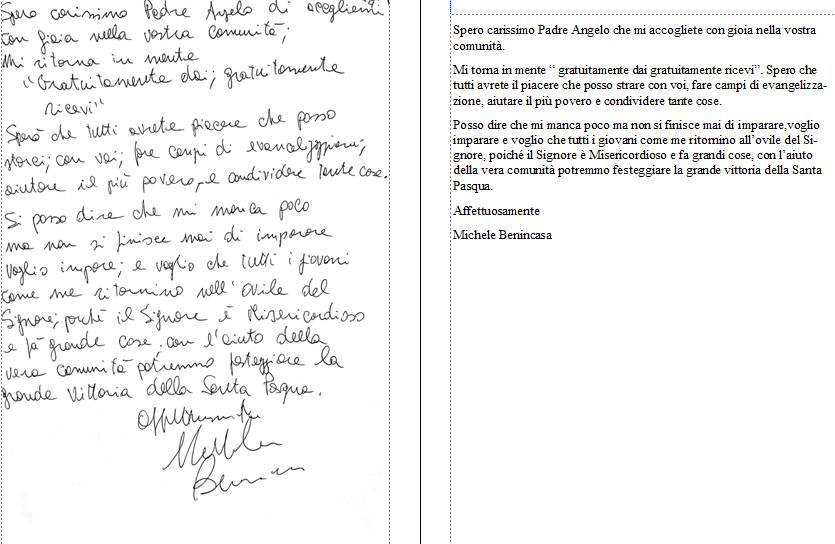 Spero carissimo Padre Angelo di accogliermi
con gioia nella vostra Comunità;
Mi ritorna in mente
"Gratuitamente dai; gratuitamente
ricevi"
Spero che tutti avrete piacere che posso
starci; con voi; fare campi di evangelizzazione;
aiutare il più povero, e condividere tante cose.
Si posso dire che mi manca poco
ma non si finisce mai di imparare
voglio impare; e voglio che tutti i giovani
come me ritornino nell'Ovile del
Signore; poiché il Signore è Misericordioso
e fà grande cose. con l'aiuto della
vera comunità potremmo festeggiare la
grande Vittoria della Santa Pasqua.
Affettuosamente
Spero carissimo Padre Angelo che mi accogliete con gioia nella vostra
comunità.
Mi torna in mente “ gratuitamente dai gratuitamente ricevi”. Spero che
tutti avrete il piacere che posso strare con voi, fare campi di evangelizza-
zione, aiutare il più povero e condividere tante cose.
Posso dire che mi manca poco ma non si finisce mai di imparare,voglio
imparare e voglio che tutti i giovani come me ritornino all’ovile del Si-
gnore, poiché il Signore è Misericordioso e fa grandi cose, con l’aiuto
della vera comunità potremmo festeggiare la grande vittoria della Santa
Pasqua.
Affettuosamente
Michele Benincasa